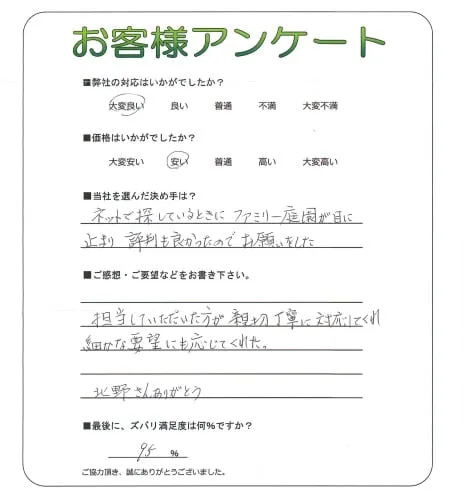 お客様アンケート
■弊社の対応はいかがでしたか？
大変良い 良い 普通 不満 大変不満
■価格はいかがでしたか？
大変安い 安い 普通 高い 大変高い
■当社を選んだ決め手は？
ネットで探しているときに ファミリー庭園が目に
止まり 評判も良かったので お願いをした
■ご感想・ご要望などをお書き下さい。
担当していただいた方が 親切丁寧に対応してくれ
細かな要望にも応じてくれた。
北野さんありがとう
■最後に、ズバリ満足度は何%ですか？
95 %
ご協力頂き、誠にありがとうございました。